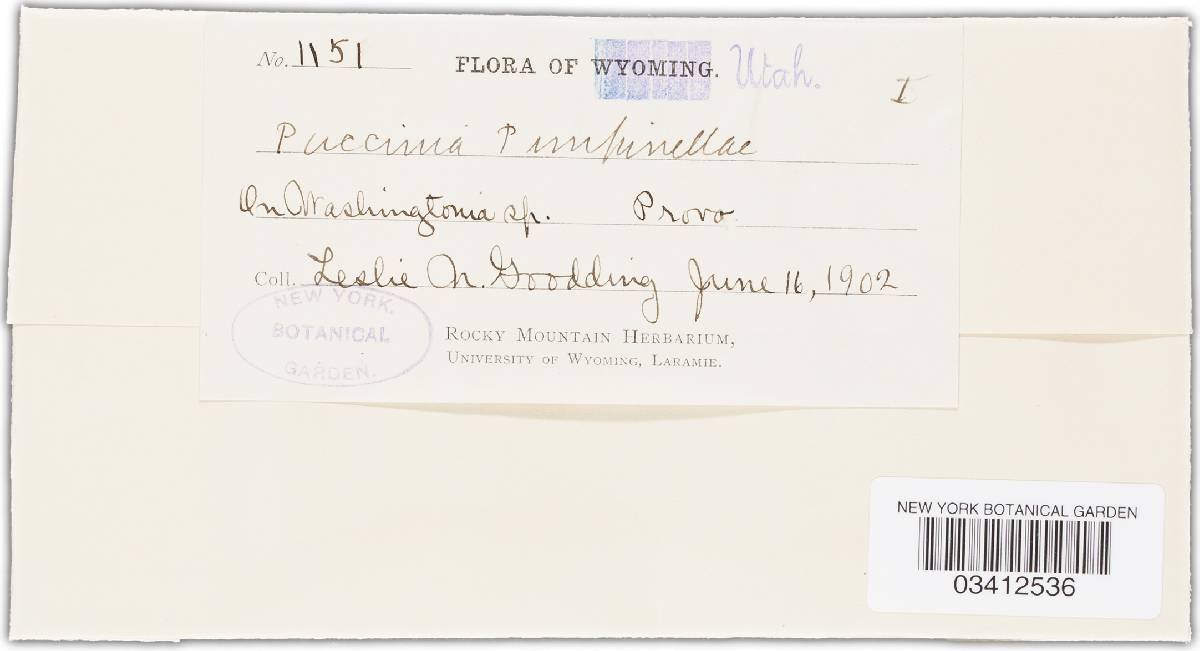 No. 1151 FLORA OF WYOMING. Utah. I
Puccinia Pimpinellae
On Washingtonia sp. Provo
Coll. Leslie N. Goodding June 16, 1902
NEW YORK.
BOTANICAL
GARDEN.
ROCKY MOUNTAIN HERBARIUM,
UNIVERSITY OF WYOMING, LARAMIE.
NEW YORK BOTANICAL GARDEN
03412536